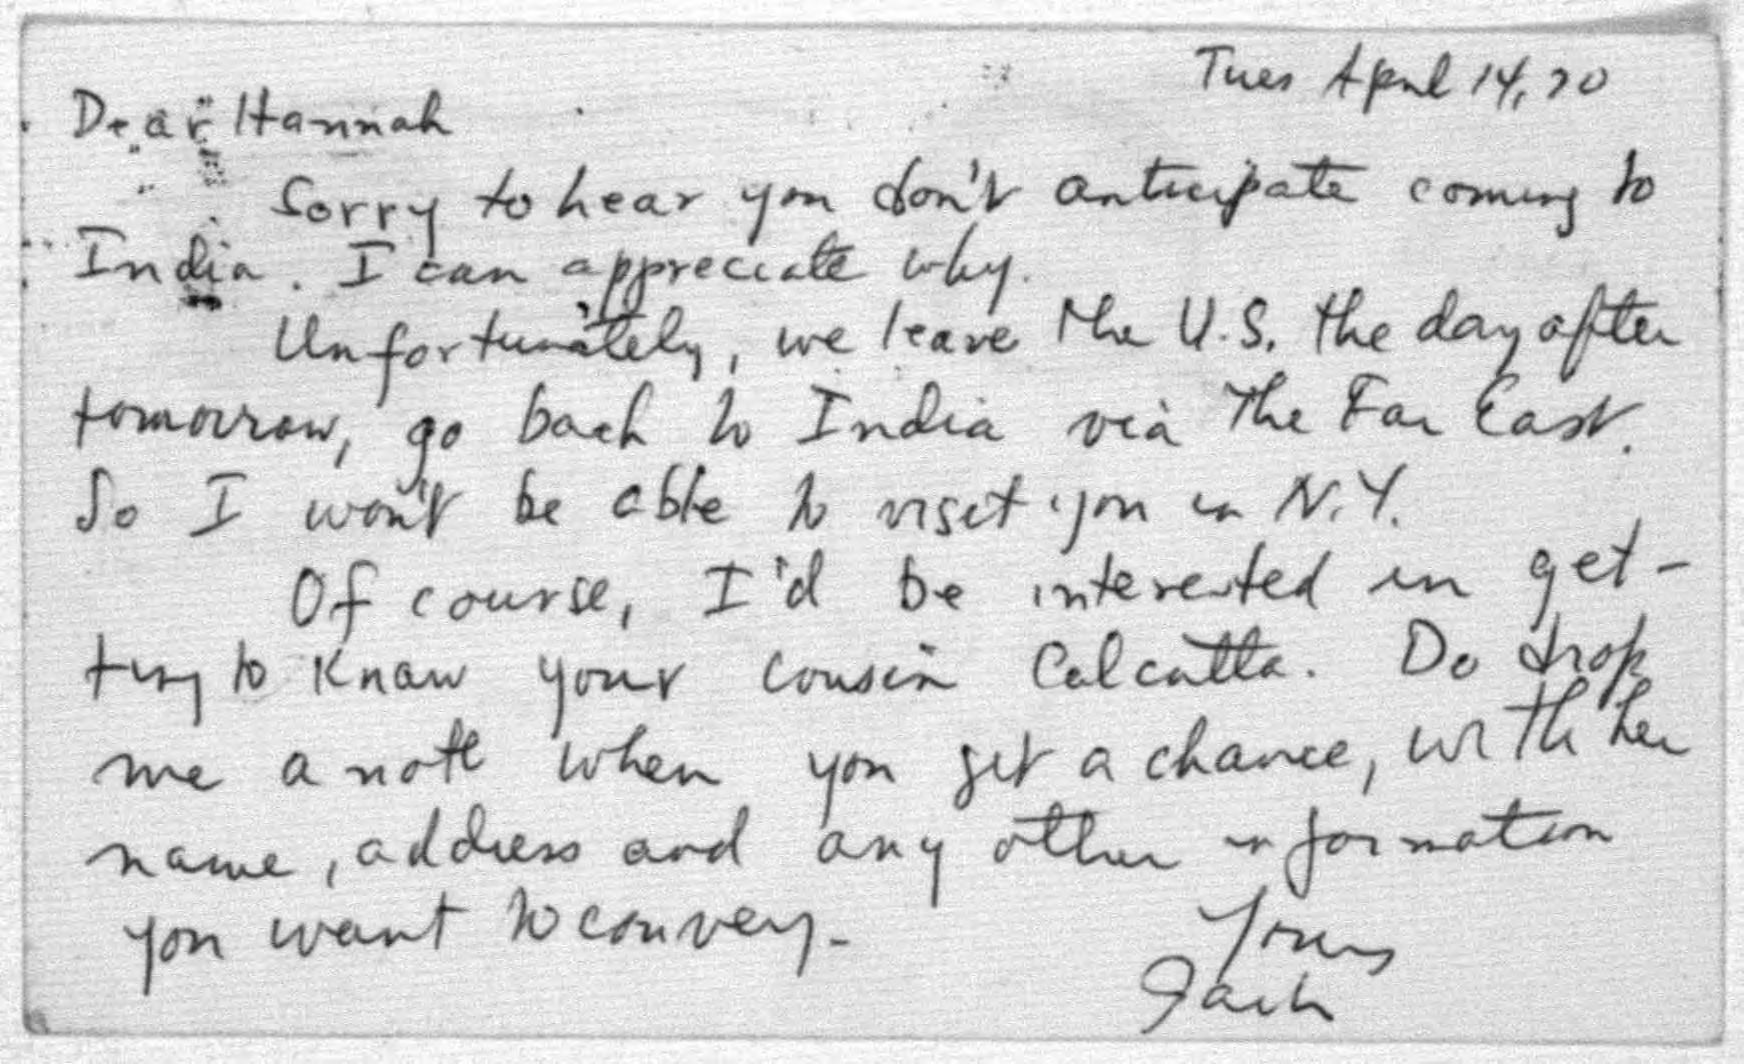 Tues April 14, 70
Dear Hannah
Sorry to hear you don't anticipate coming to
India. I can appreciate why.
Unfortunately, we leave the U.S. the day after
tomorrow, go back to India via the Far East.
So I won't be able to visit you in N.Y.
Of course, I'd be interested in get-
ting to know your cousin Calcutta. Do drop
me a note when you get a chance, with her
name, address and any other information
you want to convey.
Yours
Jack